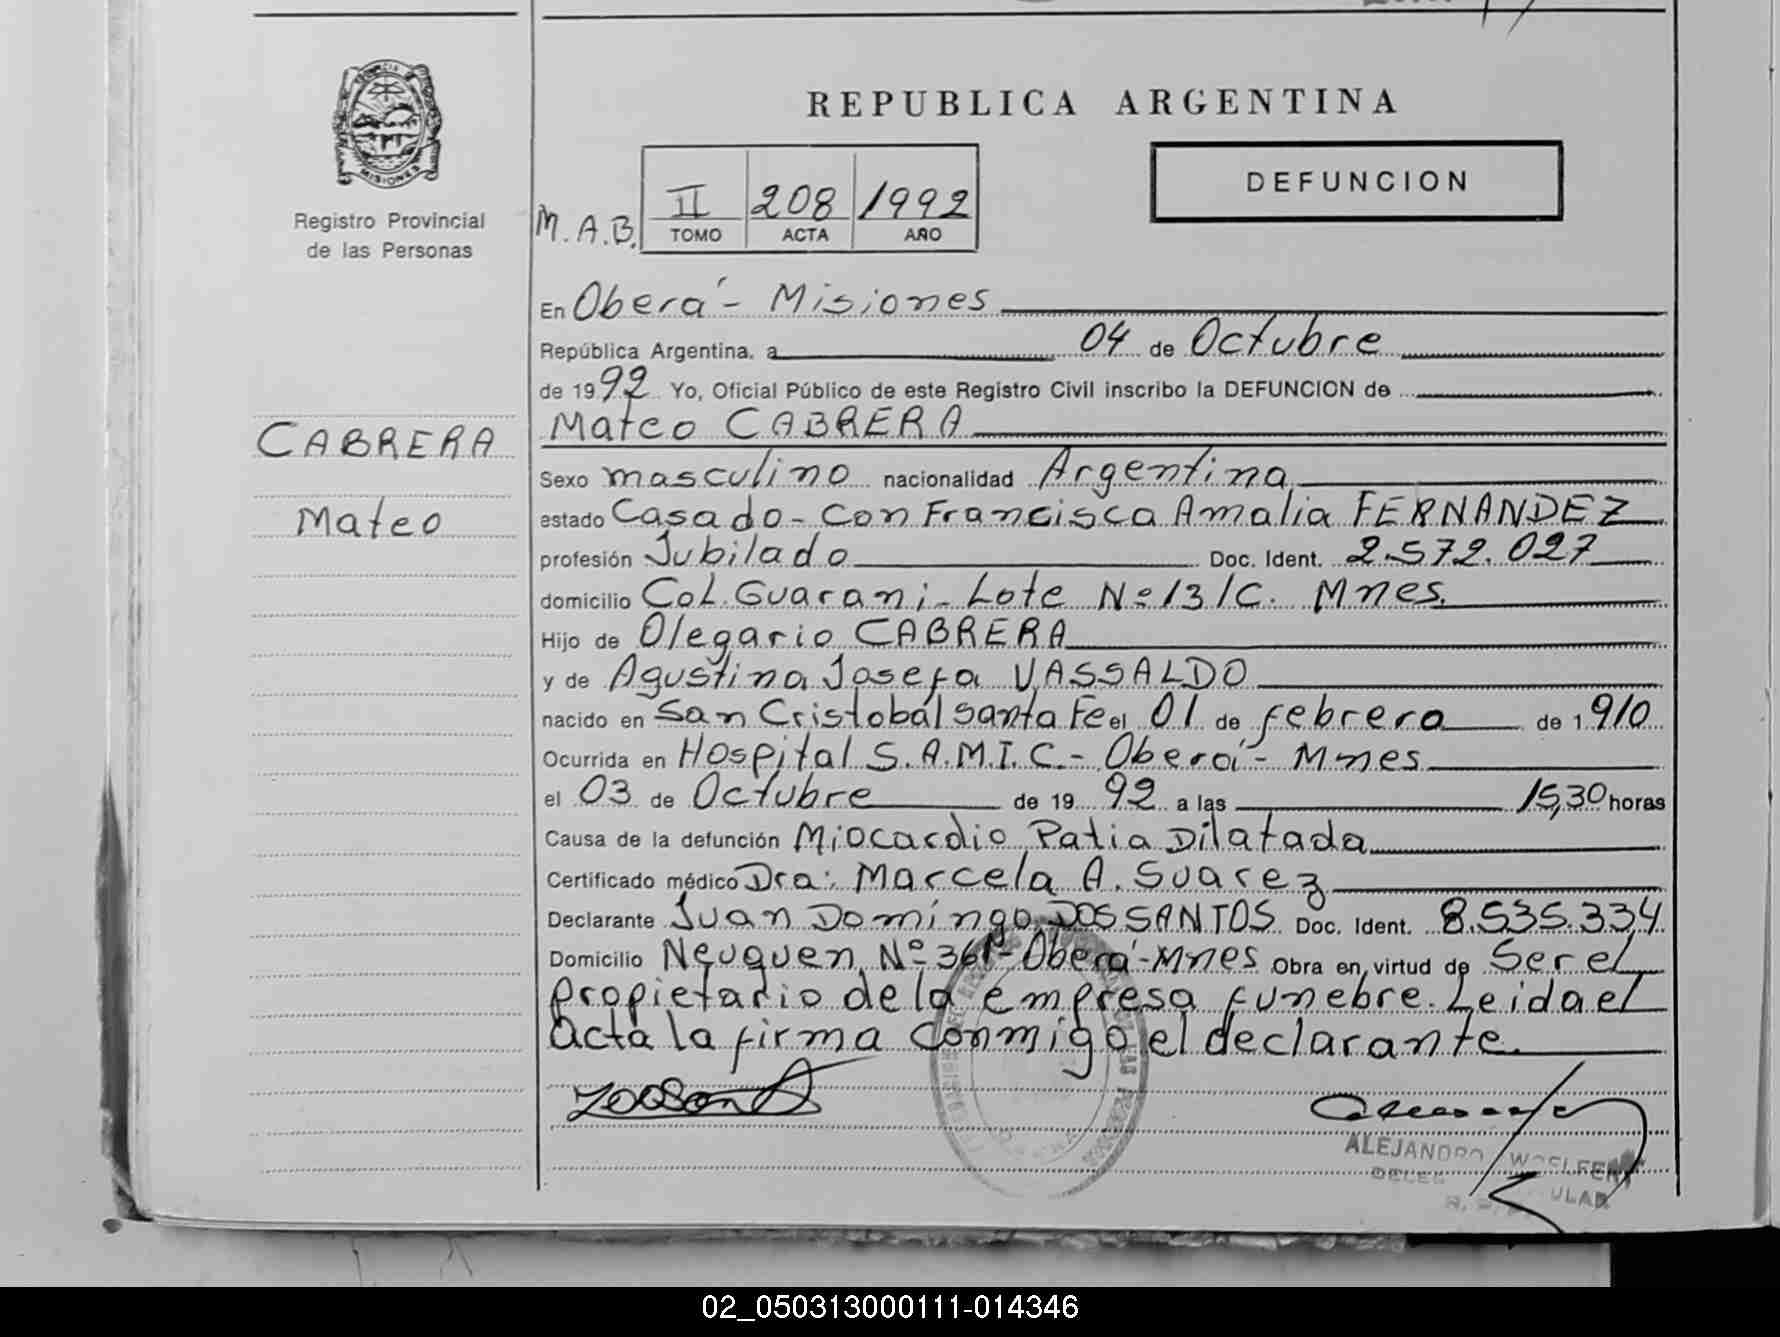 REPUBLICA ARGENTINA
DEFUNCION
MISIONES
Registro Provincial
de las Personas
M.A.B.
II 208 1992
TOMO ACTA AÑO
En Oberá - Misiones
República Argentina, a 04 de Octubre
de 1992 Yo, Oficial Público de este Registro Civil inscribo la DEFUNCION de
Mateo CABRERA
CABRERA
Mateo
Sexo masculino nacionalidad Argentina
estado Casado - con Francisca Amalia FERNANDEZ
profesión Jubilado Doc. Ident. 2.572.027
domicilio Col. Guarani - Lote Nº 131C. Mnes.
Hijo de Olegario CABRERA
y de Agustina Josefa VASSALDO
nacido en San Cristobal Santa Fe el 01 de febrero de 1910
Ocurrida en Hospital S.A.M.I.C. - Oberá - Mnes
el 03 de Octubre de 1992 a las 15,30 horas
Causa de la defunción Miocardio Patia Dilatada
Certificado médico Dra: Marcela A. Suarez
Declarante Juan Domingo DOS SANTOS Doc. Ident. 8.535.334
Domicilio Neuquen Nº 361 - Oberá - Mnes Obra en virtud de Ser el
propietario de la empresa funebre. Leida el
acta la firma conmigo el declarante.
ALEJANDRO
02_050313000111-014346